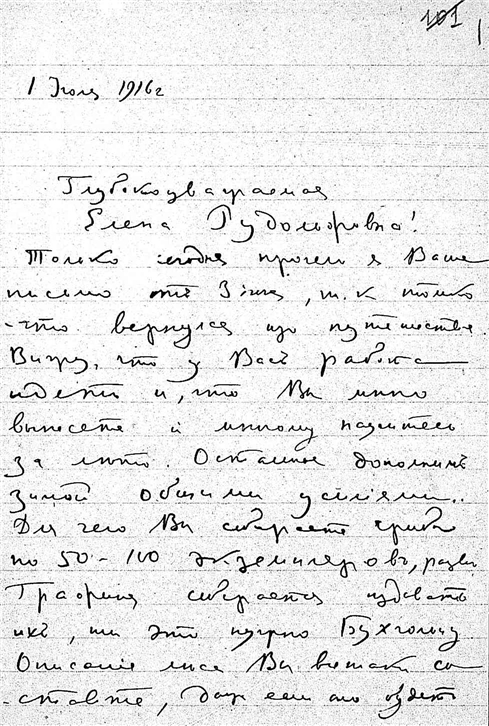 101
1
1 Июля 1916 г
Глубокоуважаемая
Елена Рудольфовна!
Только сегодня прочел я Ваше
письмо от 3 июня, т.к только
-что вернулся из путешествия.
Вижу, что у Васъ работа
идетъ и, что Вы много
вынесете и многому научитесь
за лето. Остальное дополнимъ
зимой общими усилiями.
Для чего Вы собираете грибы
по 50-100 экземпляровъ, разве
Траншель собирается издавать
ихъ, или это нужно Бухгольцу
Описанiе леса Вы все-таки со-
-ставьте, даже если оно будетъ